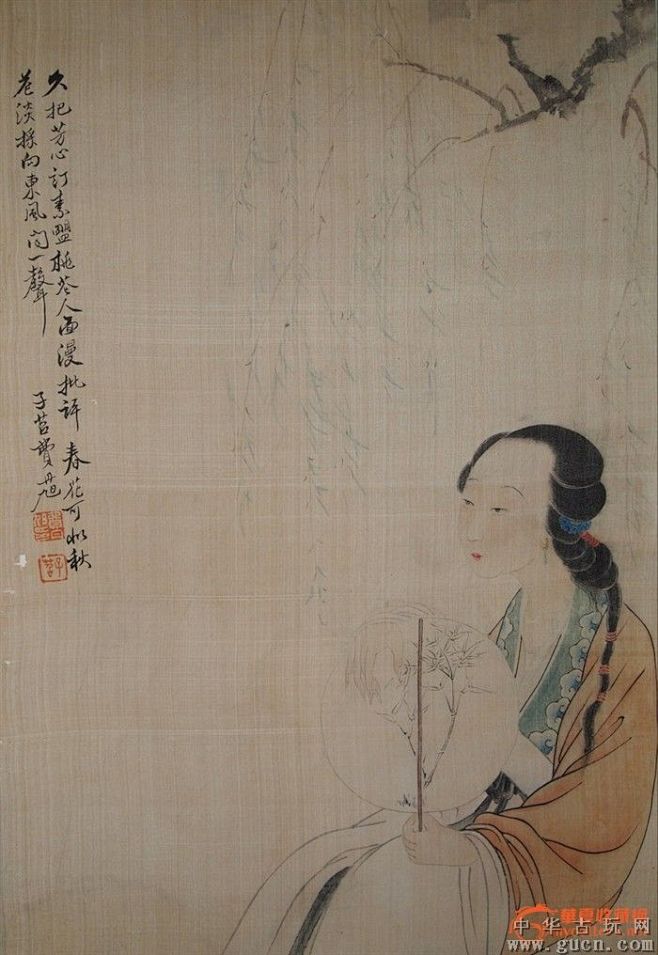 久把芳心訂素盟桃花人面漫批評春花可似秋
花淡採向東風問一聲
子苕費丹旭
華夏收藏網
中华古玩网
www.gucn.com